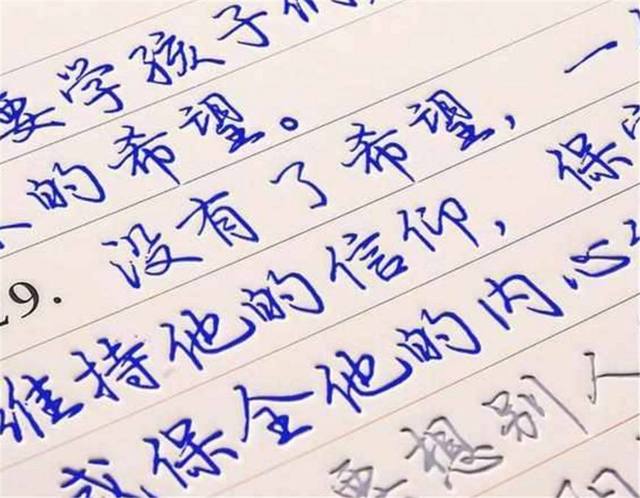 要学孩子们
的希望。
29. 没有了希望，一
维持他的信仰，保
或保全他的内心
要想别人